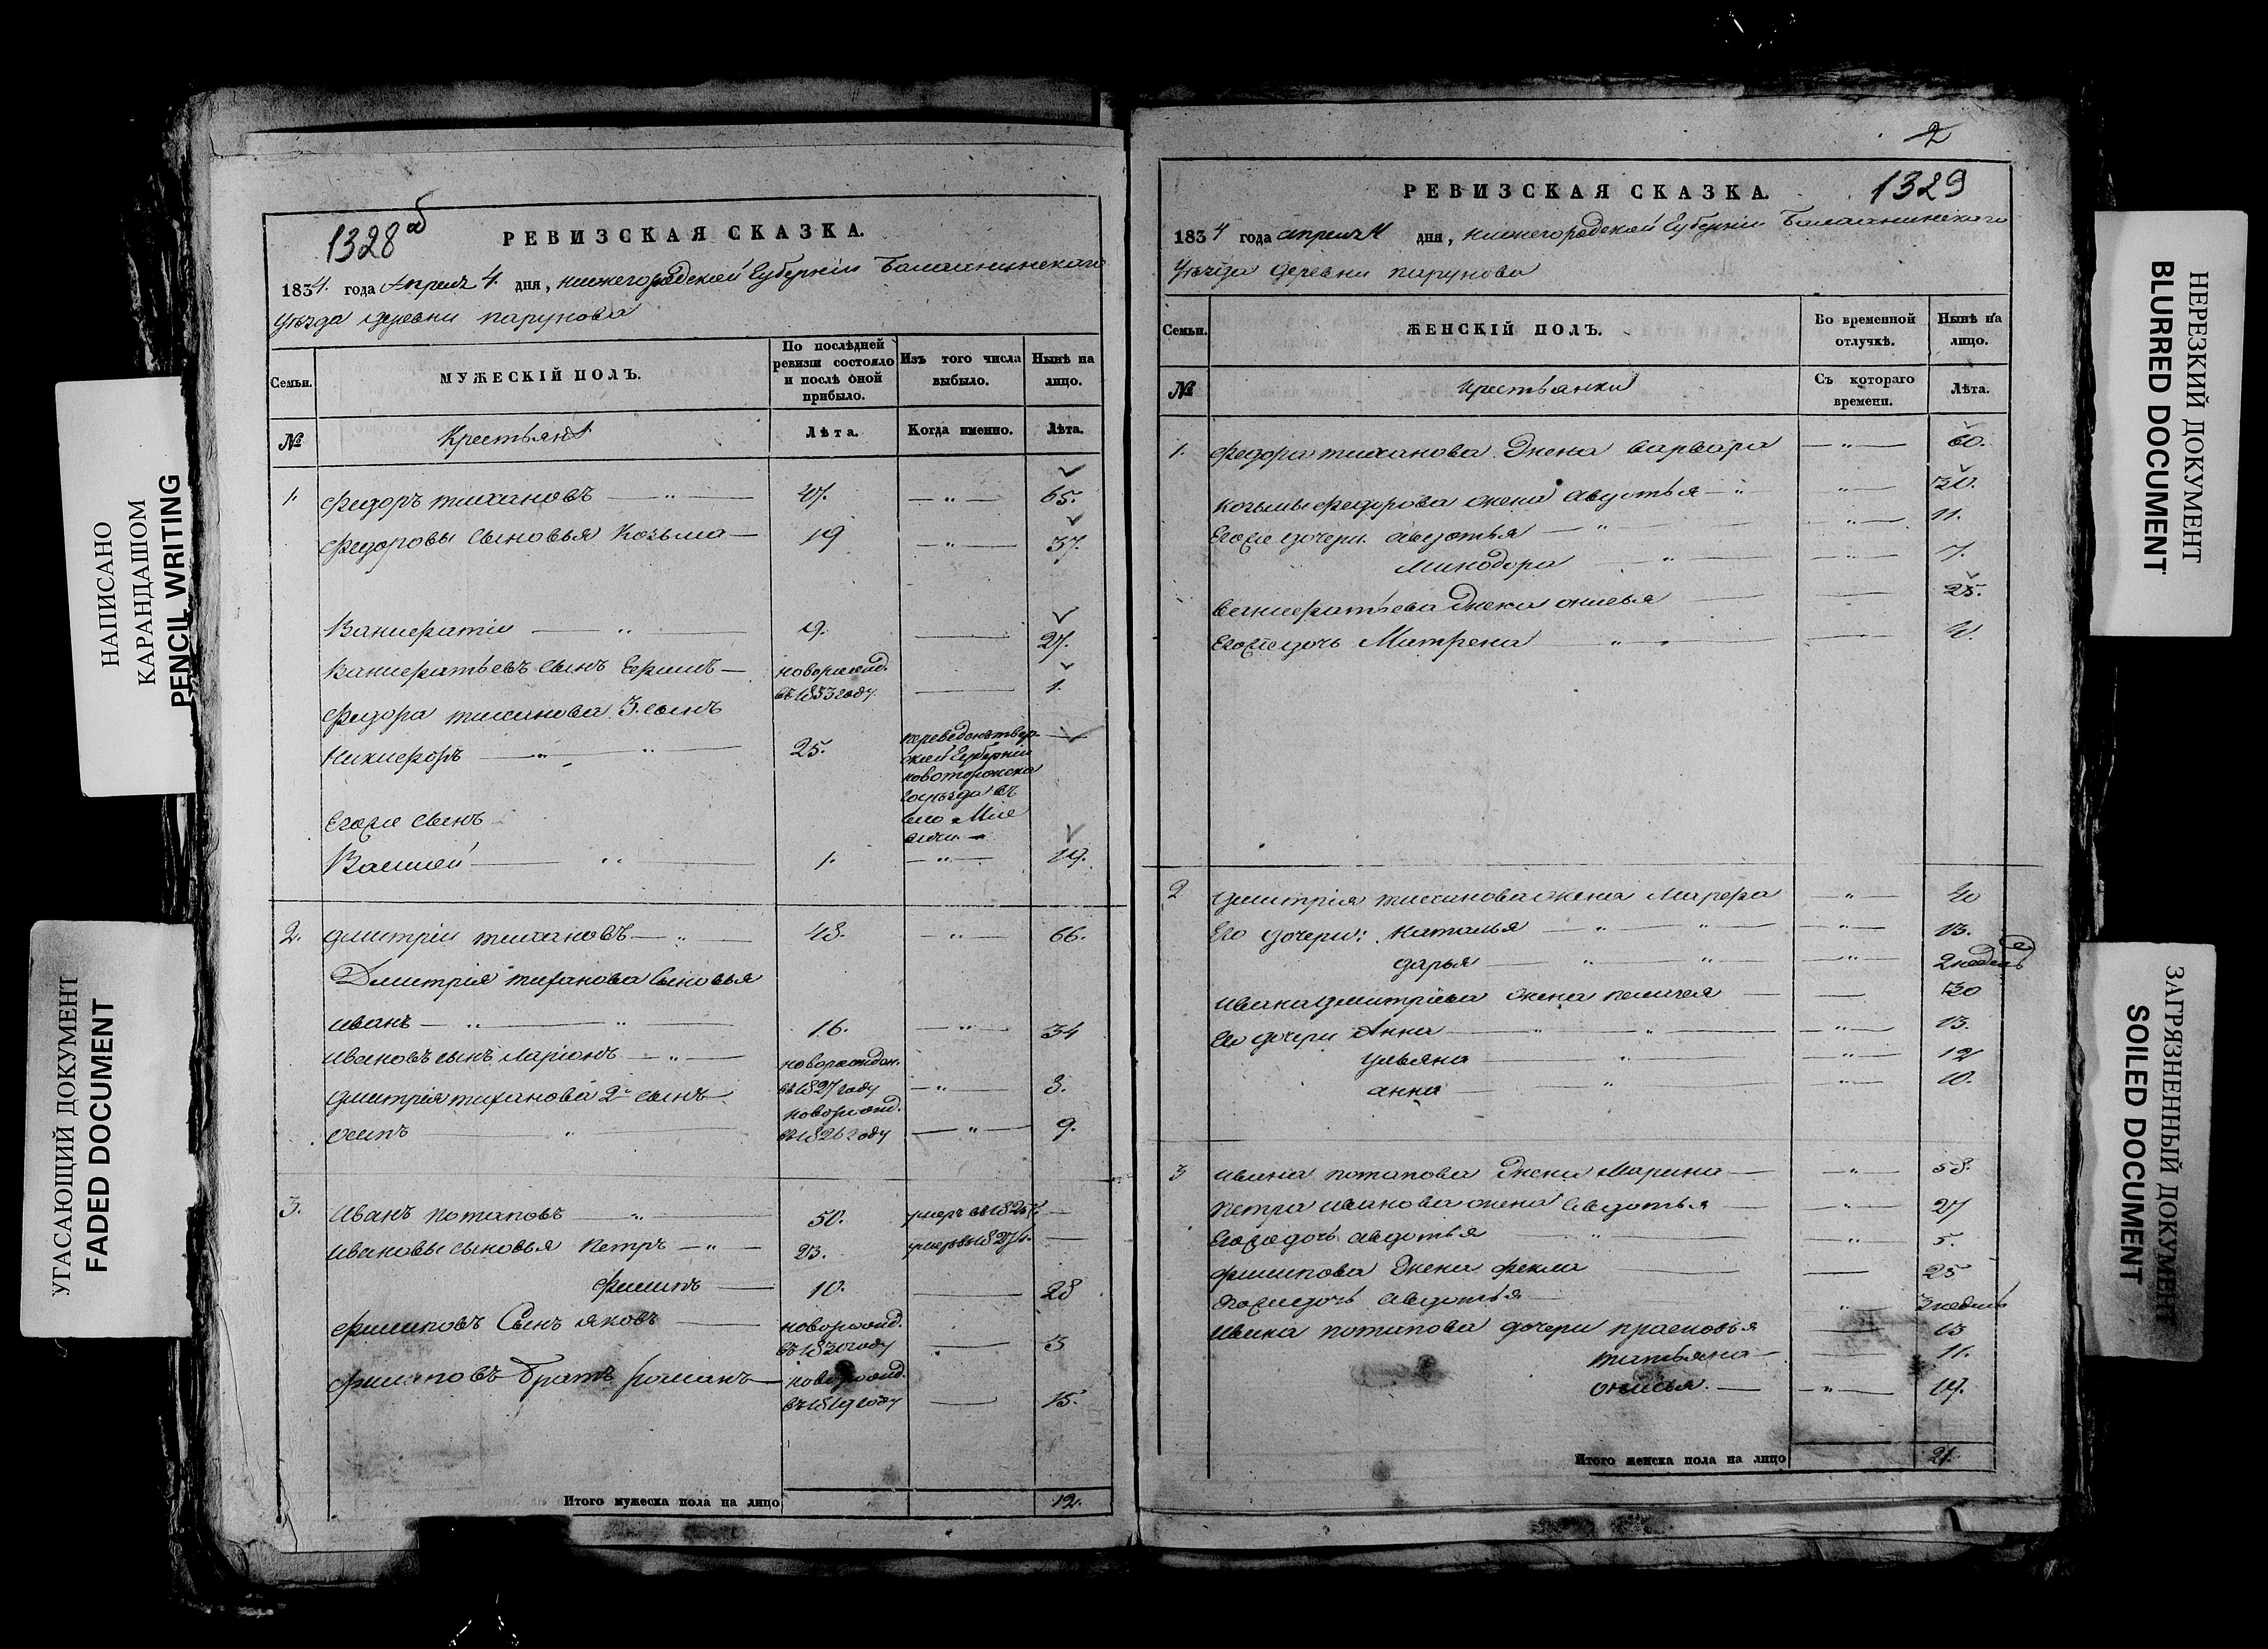 НАПИСАНО
КАРАНДАШОМ
PENCIL WRITING
УГАСАЮЩИЙ ДОКУМЕНТ
FADED DOCUMENT
1328 об
РЕВИЗСКАЯ СКАЗКА.
1834. года Апреля 4. дня, Нижегородской Губернии Балахнинскаго
Уезда деревни Парунова
Семьи.
МУЖЕСКІЙ ПОЛЪ.
По послѣдней ревизіи состояло и послѣ оной прибыло.
Изъ того числа выбыло.
Нынѣ на лицо.
№
Крестьянѣ
Лѣта.
Когда именно.
Лѣта.
1. Федоръ Тихановъ 47. 65.
Федоровы сыновья Козьма 19 37.
19. 27.
сынъ новорожд.
въ 1833 году 1.
Федора Тиханова 3. сынъ
Никифоръ 25. переведенъ твер-
ской Губерніи
новоторжска
го уезда въ
село
Егоже сынъ
1. 19.
2. Дмитріи Тихановъ 48. 66.
Дмитрія Тиханова сыновья
Иванъ 16. 34
Ивановъ сынъ Ларіонъ новорожден.
въ 1827 году 8.
Дмитрія Тиханова 2й сынъ новорожд.
Осипъ въ 1826 году 9.
3. Иванъ Потаповъ 50. умеръ въ
Ивановы сыновья Петръ 23. умеръ въ
Филипъ 10. 28
Филиповъ Сынъ Яковъ новорожд.
въ 1830 году 3
Филиповъ братъ Романъ новорожд.
въ 1819 году 15.
Итого мужеска пола на лицо 12.
2
1329
РЕВИЗСКАЯ СКАЗКА.
1834 года Апреля 4 дня, Нижегородской Губерніи Балахнинскаго
Уезда деревни Парунова
Семьи.
ЖЕНСКІЙ ПОЛЪ.
Во временной отлучкѣ.
Нынѣ на лицо.
№
Крестьянки
Съ котораго времени.
Лѣта.
1. Федора Тиханова Жена Варвара 60.
Козьмы Федорова жена Авдотья 30.
Егоже дочери Авдотья 11.
Минодора 7.
жена Онисья 25.
Егоже дочь Матрена 4.
2 Дмитрія Тиханова жена Марфа 40
Его дочери: Наталья 13.
Дарья 2 недель
Ивана Дмитріева жена Пелагея 30
Его дочери Анна 13.
Ульяна 12
Анна 10.
3 Ивана Потапова Жена Марина 58.
Петра Иванова жена Авдотья 27
Егоже дочь Авдотья 5.
Филипова Жена Фекла 25
Егоже дочь Авдотья 3 недель
Ивана Потапова дочери Прасковья 13
Татьяна 11.
Онисья. 19.
Итого женска пола на лицо 21.
НЕРЕЗКИЙ ДОКУМЕНТ
BLURRED DOCUMENT
ЗАГРЯЗНЕННЫЙ ДОКУМЕНТ
SOILED DOCUMENT